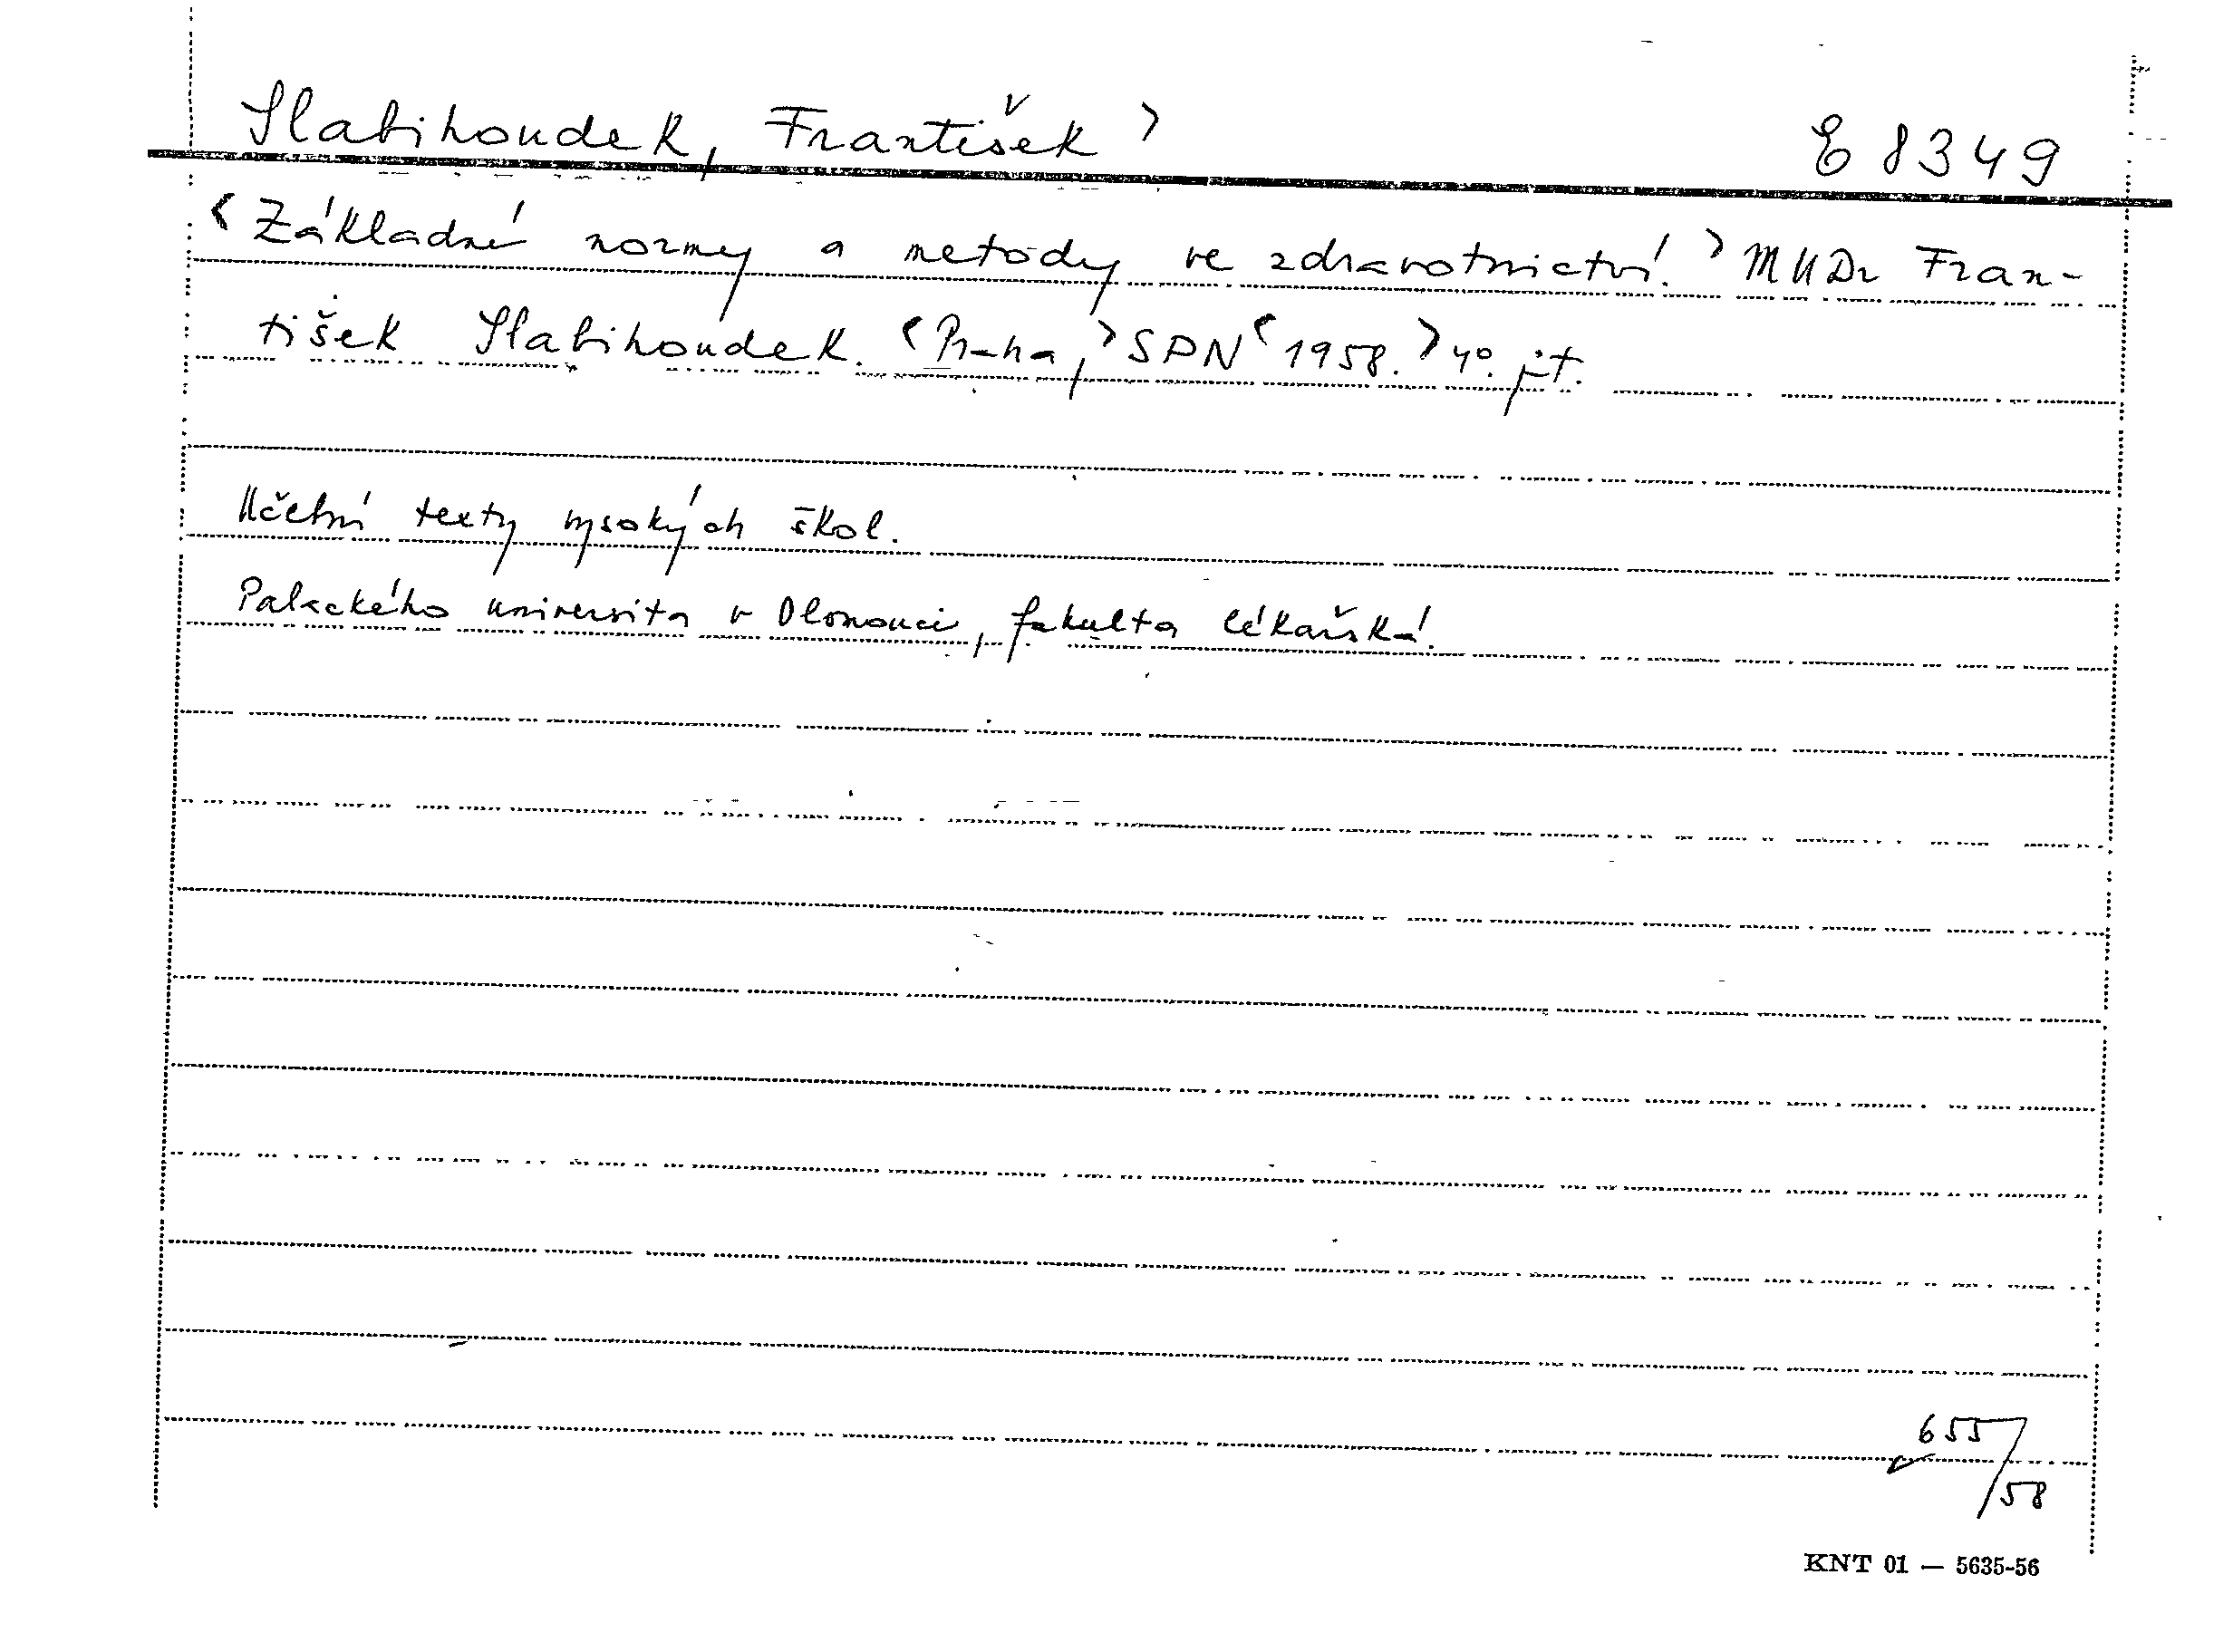 Slabihoudek, František > E 8349
< Základní normy a metody ve zdravotnictví. > MUDr Fran-
tišek Slabihoudek. < Praha, > SPN < 1958. > 4°. 
Učební texty vysokých škol.
Palackého universita v Olomouci, fakulta lékařská.
655/58
KNT 01 — 5635-56